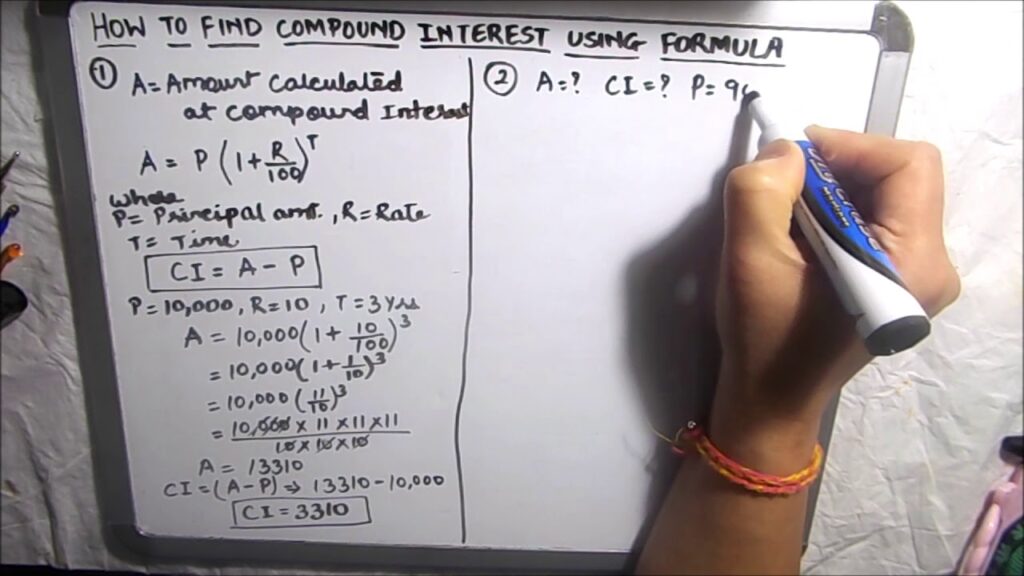 HOW TO FIND COMPOUND INTEREST USING FORMULA
① A = Amount Calculated
at compound Interest
A = P (1 + R/100)^T
where
P = Principal amt. , R = Rate
T = Time
CI = A - P
P = 10,000, R = 10 , T = 3 yrs
A = 10,000 (1 + 10/100)^3
= 10,000 (1 + 1/10)^3
= 10,000 (11/10)^3
= 10,000 × 11 × 11 × 11 / 10 × 10 × 10
A = 13310
CI = (A - P) ⇒ 13310 - 10,000
CI = 3310
② A = ? CI = ? P = 9